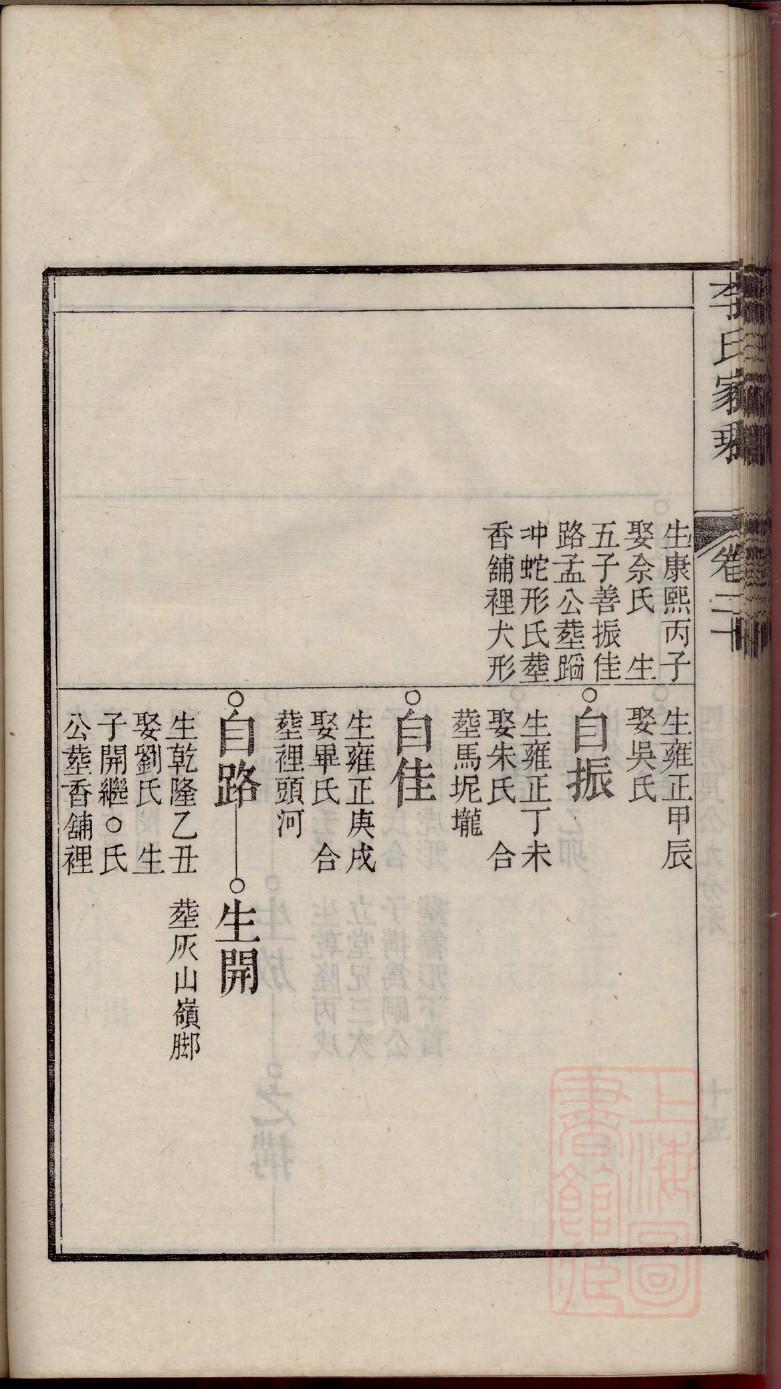 李氏家乘
卷二十
生康熙丙子
娶余氏 生
五子善振佳
路孟公塟蹈
冲蛇形氏塟
香舖裡犬形
生雍正甲辰
娶吳氏
自振
生雍正丁未
娶朱氏 合
塟馬坭壠
自佳
生雍正庚戌
娶畢氏 合
塟裡頭河
自路
生乾隆乙丑
娶劉氏 生
子開繼○氏
公塟香舖裡
生開
塟灰山嶺脚
上海圖
書館藏